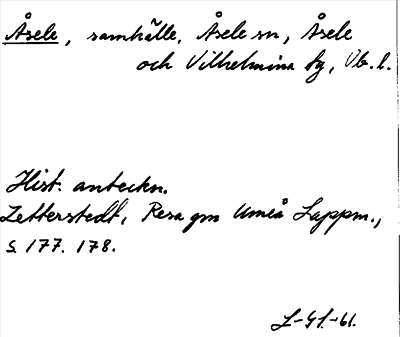 Åsele, samhälle, Åsele sn, Åsele
och Vilhelmina tg, Vb. l.
Hist. anteckn.
Zetterstedt, Resa gm Umeå Lappm.,
s. 177. 178.